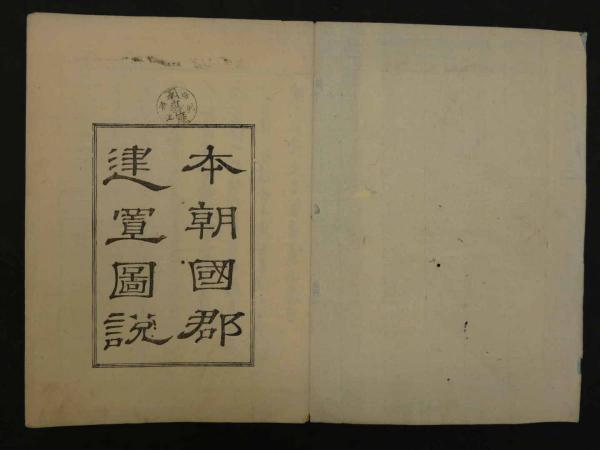 本朝國郡
建置圖說